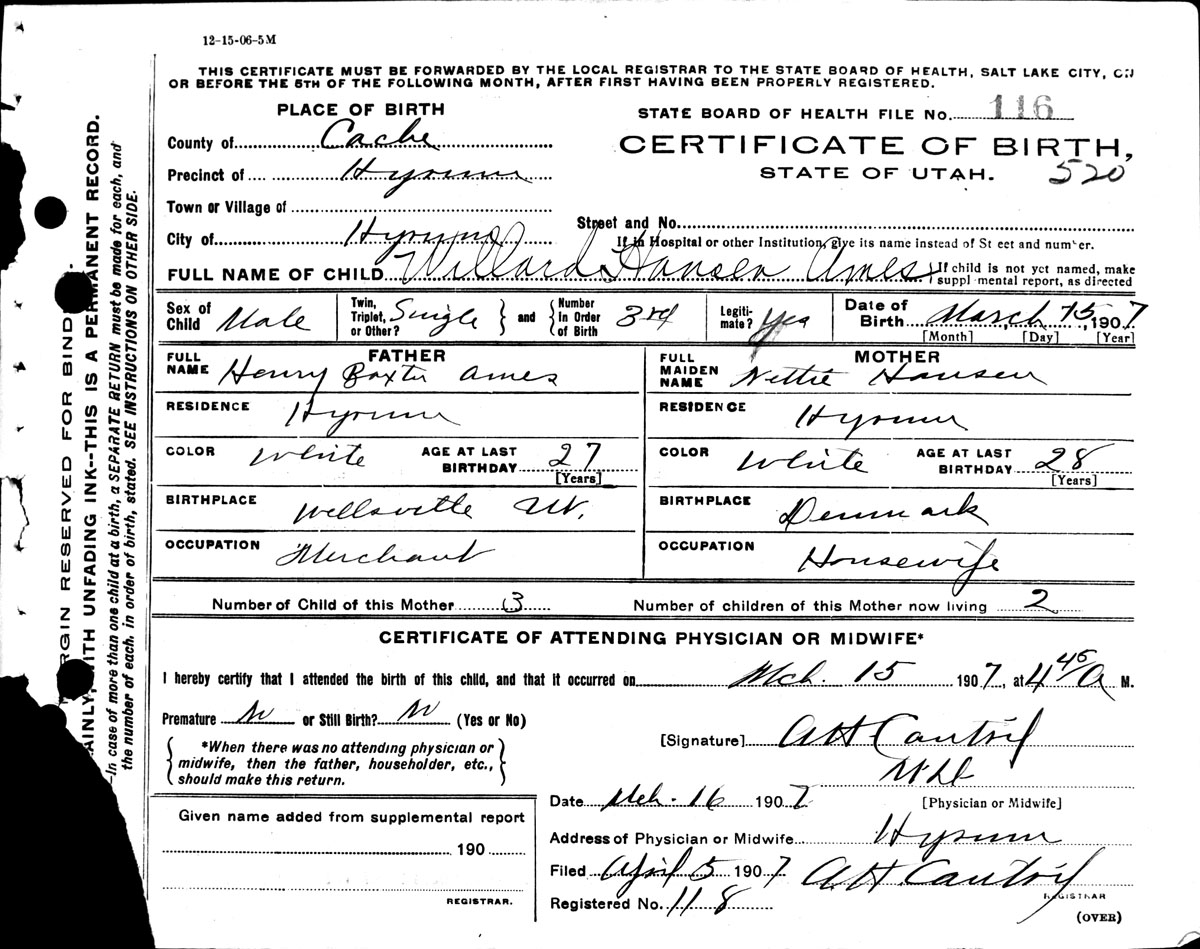 12-15-06-5M
THIS CERTIFICATE MUST BE FORWARDED BY THE LOCAL REGISTRAR TO THE STATE BOARD OF HEALTH, SALT LAKE CITY,
OR BEFORE THE 5TH OF THE FOLLOWING MONTH, AFTER FIRST HAVING BEEN PROPERLY REGISTERED.
PLACE OF BIRTH
STATE BOARD OF HEALTH FILE No. 116
County of Cache
CERTIFICATE OF BIRTH,
Precinct of Hyrum
STATE OF UTAH. 520
Town or Village of
Street and No.
City of Hyrum
If in Hospital or other Institution, give its name instead of St eet and number.
FULL NAME OF CHILD Willard Hansen Ames
If child is not yet named, make
suppl mental report, as directed
Sex of Child Male
Twin, Triplet, or Other? Single
and
Number In Order of Birth 3rd
Legiti-mate? Yes
Date of Birth March 15, 1907
[Month] [Day] [Year]
FATHER
FULL NAME Henry Baxter Ames
MOTHER
FULL MAIDEN NAME Nettie Hansen
RESIDENCE Hyrum
RESIDENCE Hyrum
COLOR White AGE AT LAST BIRTHDAY 27
[Years]
COLOR White AGE AT LAST BIRTHDAY 28
[Years]
BIRTHPLACE Wellsville Ut.
BIRTHPLACE Denmark
OCCUPATION Merchant
OCCUPATION Housewife
Number of Child of this Mother 3 Number of children of this Mother now living 2
CERTIFICATE OF ATTENDING PHYSICIAN OR MIDWIFE*
I hereby certify that I attended the birth of this child, and that it occurred on Mch. 15 1907, at 4 45 A M.
Premature No or Still Birth? No (Yes or No)
*When there was no attending physician or
midwife, then the father, householder, etc.,
should make this return.
[Signature] AH Cantril
MD
[Physician or Midwife]
Date Mch. 16 1907
Given name added from supplemental report
190
REGISTRAR.
Address of Physician or Midwife Hyrum
Filed April 5 1907 AH Cantril
REGISTRAR
Registered No. 118
(OVER)
MARGIN RESERVED FOR BIND
AINLY, WITH UNFADING INK--THIS IS A PERMANENT RECORD.
—In case of more than one child at a birth, a SEPARATE RETURN must be made for each, and
the number of each, in order of birth, stated. SEE INSTRUCTIONS ON OTHER SIDE.